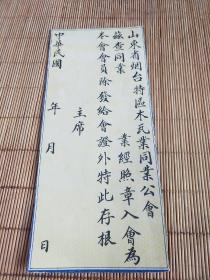 山東省烟台特區木瓦業同業公會為
兹查同業　　業經照章入會為
本會會員除發給會證外特此存根
主席
中華民國　年　月　日